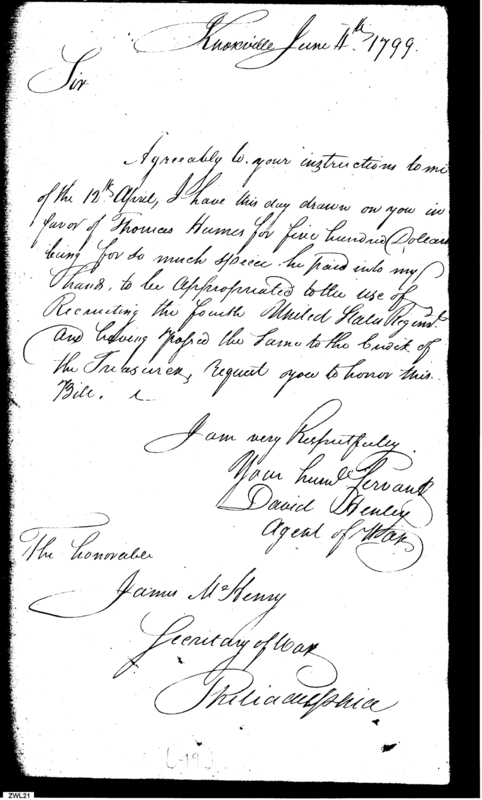 Knoxville June 4th 1799.
Sir
Agreeably to your instructions to me
of the 12th April, I have this day drawn on you in
favor of Thomas Humes for five hundred Dollars
being for so much specie he paid into my
hands, to be appropriated to the use of
Recruiting the fourth United States Regimt.
and having passed the same to the Credit of
the Treasurer, request you to honor this
Bill.
I am very Respectfuley
Your humle Servant
David Henley
Agent of War
The honorable
James McHenry
Secretary of War
Philiadelphia
ZWL21